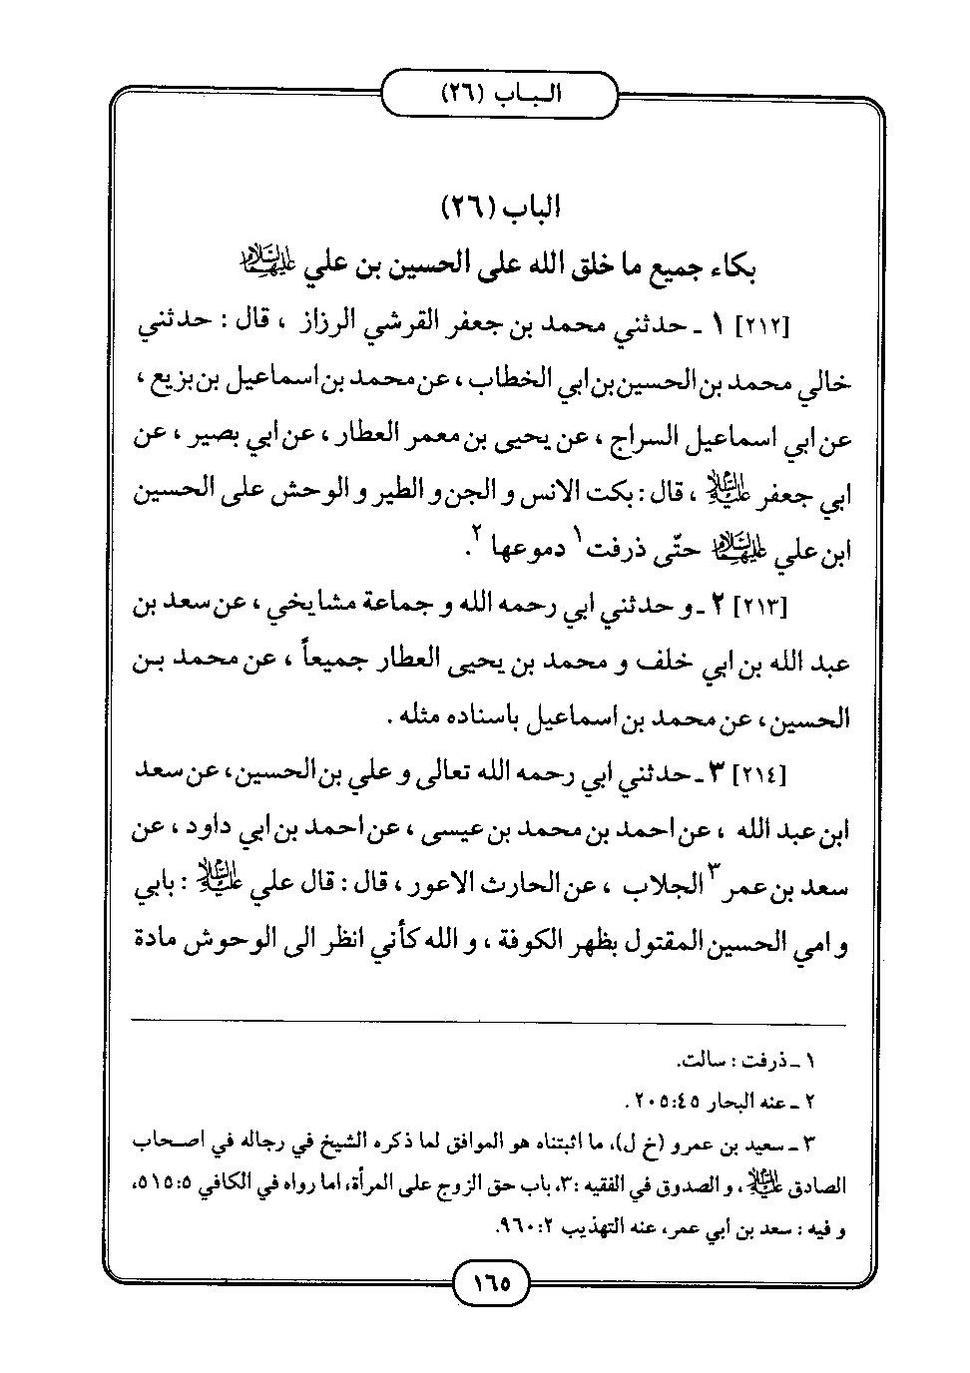 الباب (٢٦)
الباب (٢٦)
بكاء جميع ما خلق الله على الحسين بن علي عليهما السلام
[٢١٢] ١ ـ حدثني محمد بن جعفر القرشي الرزاز ، قال : حدثني
خالي محمد بن الحسين بن ابي الخطاب ، عن محمد بن اسماعيل بن بزيع ،
عن ابي اسماعيل السراج ، عن يحيى بن معمر العطار ، عن ابي بصير ، عن
ابي جعفر عليه السلام ، قال : بكت الانس و الجن و الطير و الوحش على الحسين
ابن علي عليهما السلام حتّى ذرفت١ دموعها ٢.
[٢١٣] ٢ ـ و حدثني ابي رحمه الله و جماعة مشايخي ، عن سعد بن
عبد الله بن ابي خلف و محمد بن يحيى العطار جميعاً ، عن محمد بن
الحسين ، عن محمد بن اسماعيل باسناده مثله .
[٢١٤] ٣ ـ حدثني ابي رحمه الله تعالى و علي بن الحسين، عن سعد
ابن عبد الله ، عن احمد بن محمد بن عيسى ، عن احمد بن ابي داود ، عن
سعد بن عمر٣ الجلاب ، عن الحارث الاعور ، قال : قال علي عليه السلام : بابي
و امي الحسين المقتول بظهر الكوفة ، و الله كأني انظر الى الوحوش مادة
١ ـ ذرفت : سالت.
٢ ـ عنه البحار ٤٥:‏٢٠٥ .
٣ ـ سعيد بن عمرو (خ ل)، ما اثبتناه هو الموافق لما ذكره الشيخ في رجاله في اصحاب
الصادق عليه السلام ، و الصدوق في الفقيه :٣، باب حق الزوج على المرأة، اما رواه في الكافي ٥:‏٥١٥،
و فيه : سعد بن أبي عمر، عنه التهذيب ٢:‏٩٦٠.
١٦٥